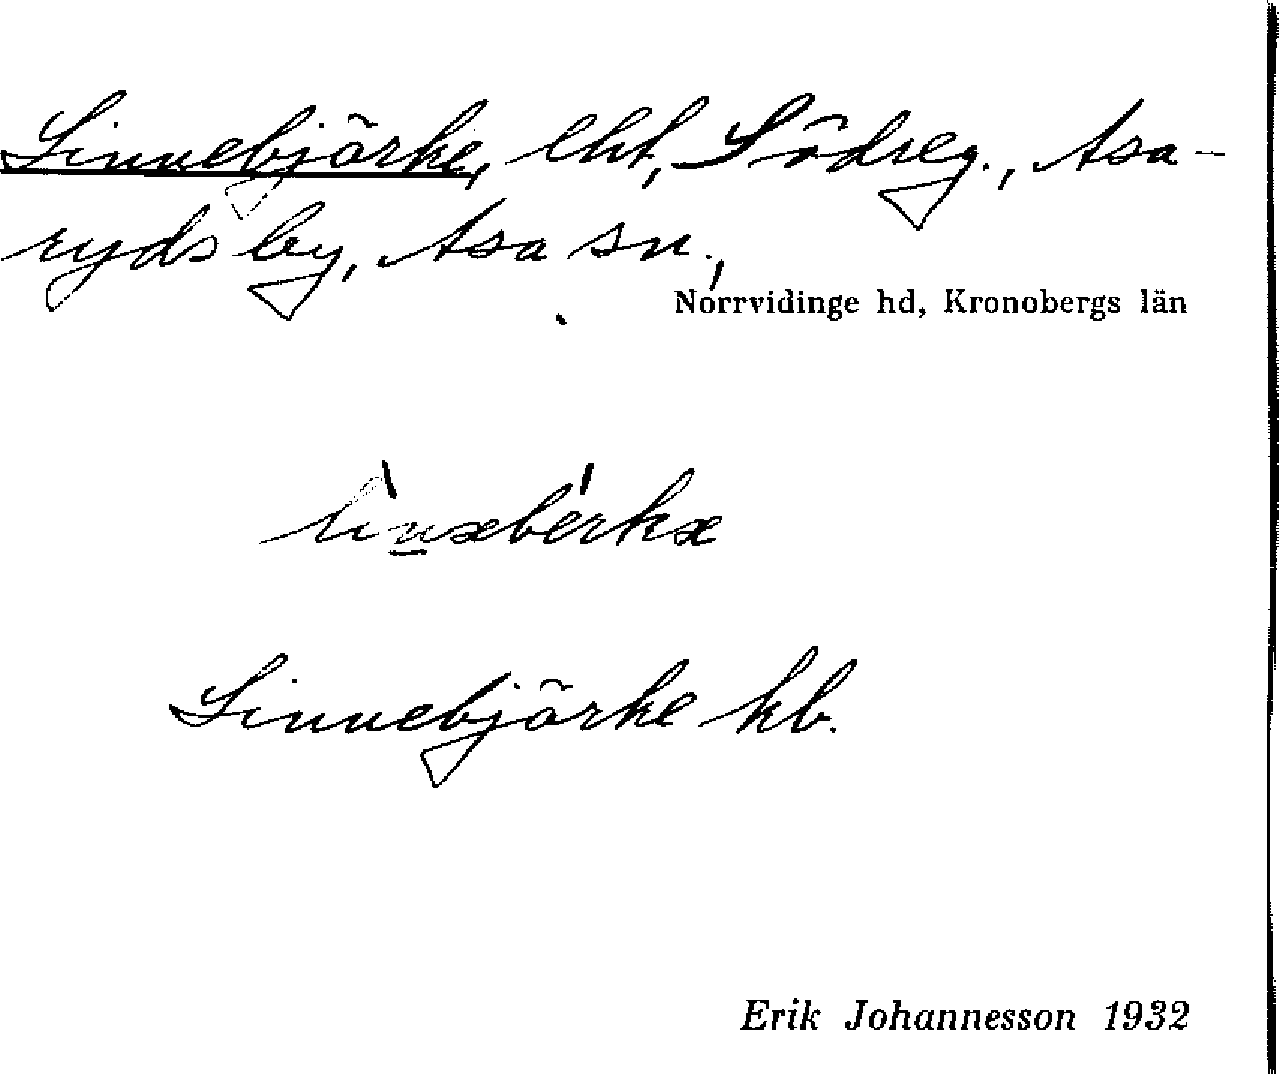 Linnebjörke, lht, Södreg., Asa-
ryds by, Asa sn.,
Norrvidinge hd, Kronobergs län
Linnebjörke kb.
Erik Johannesson 1932